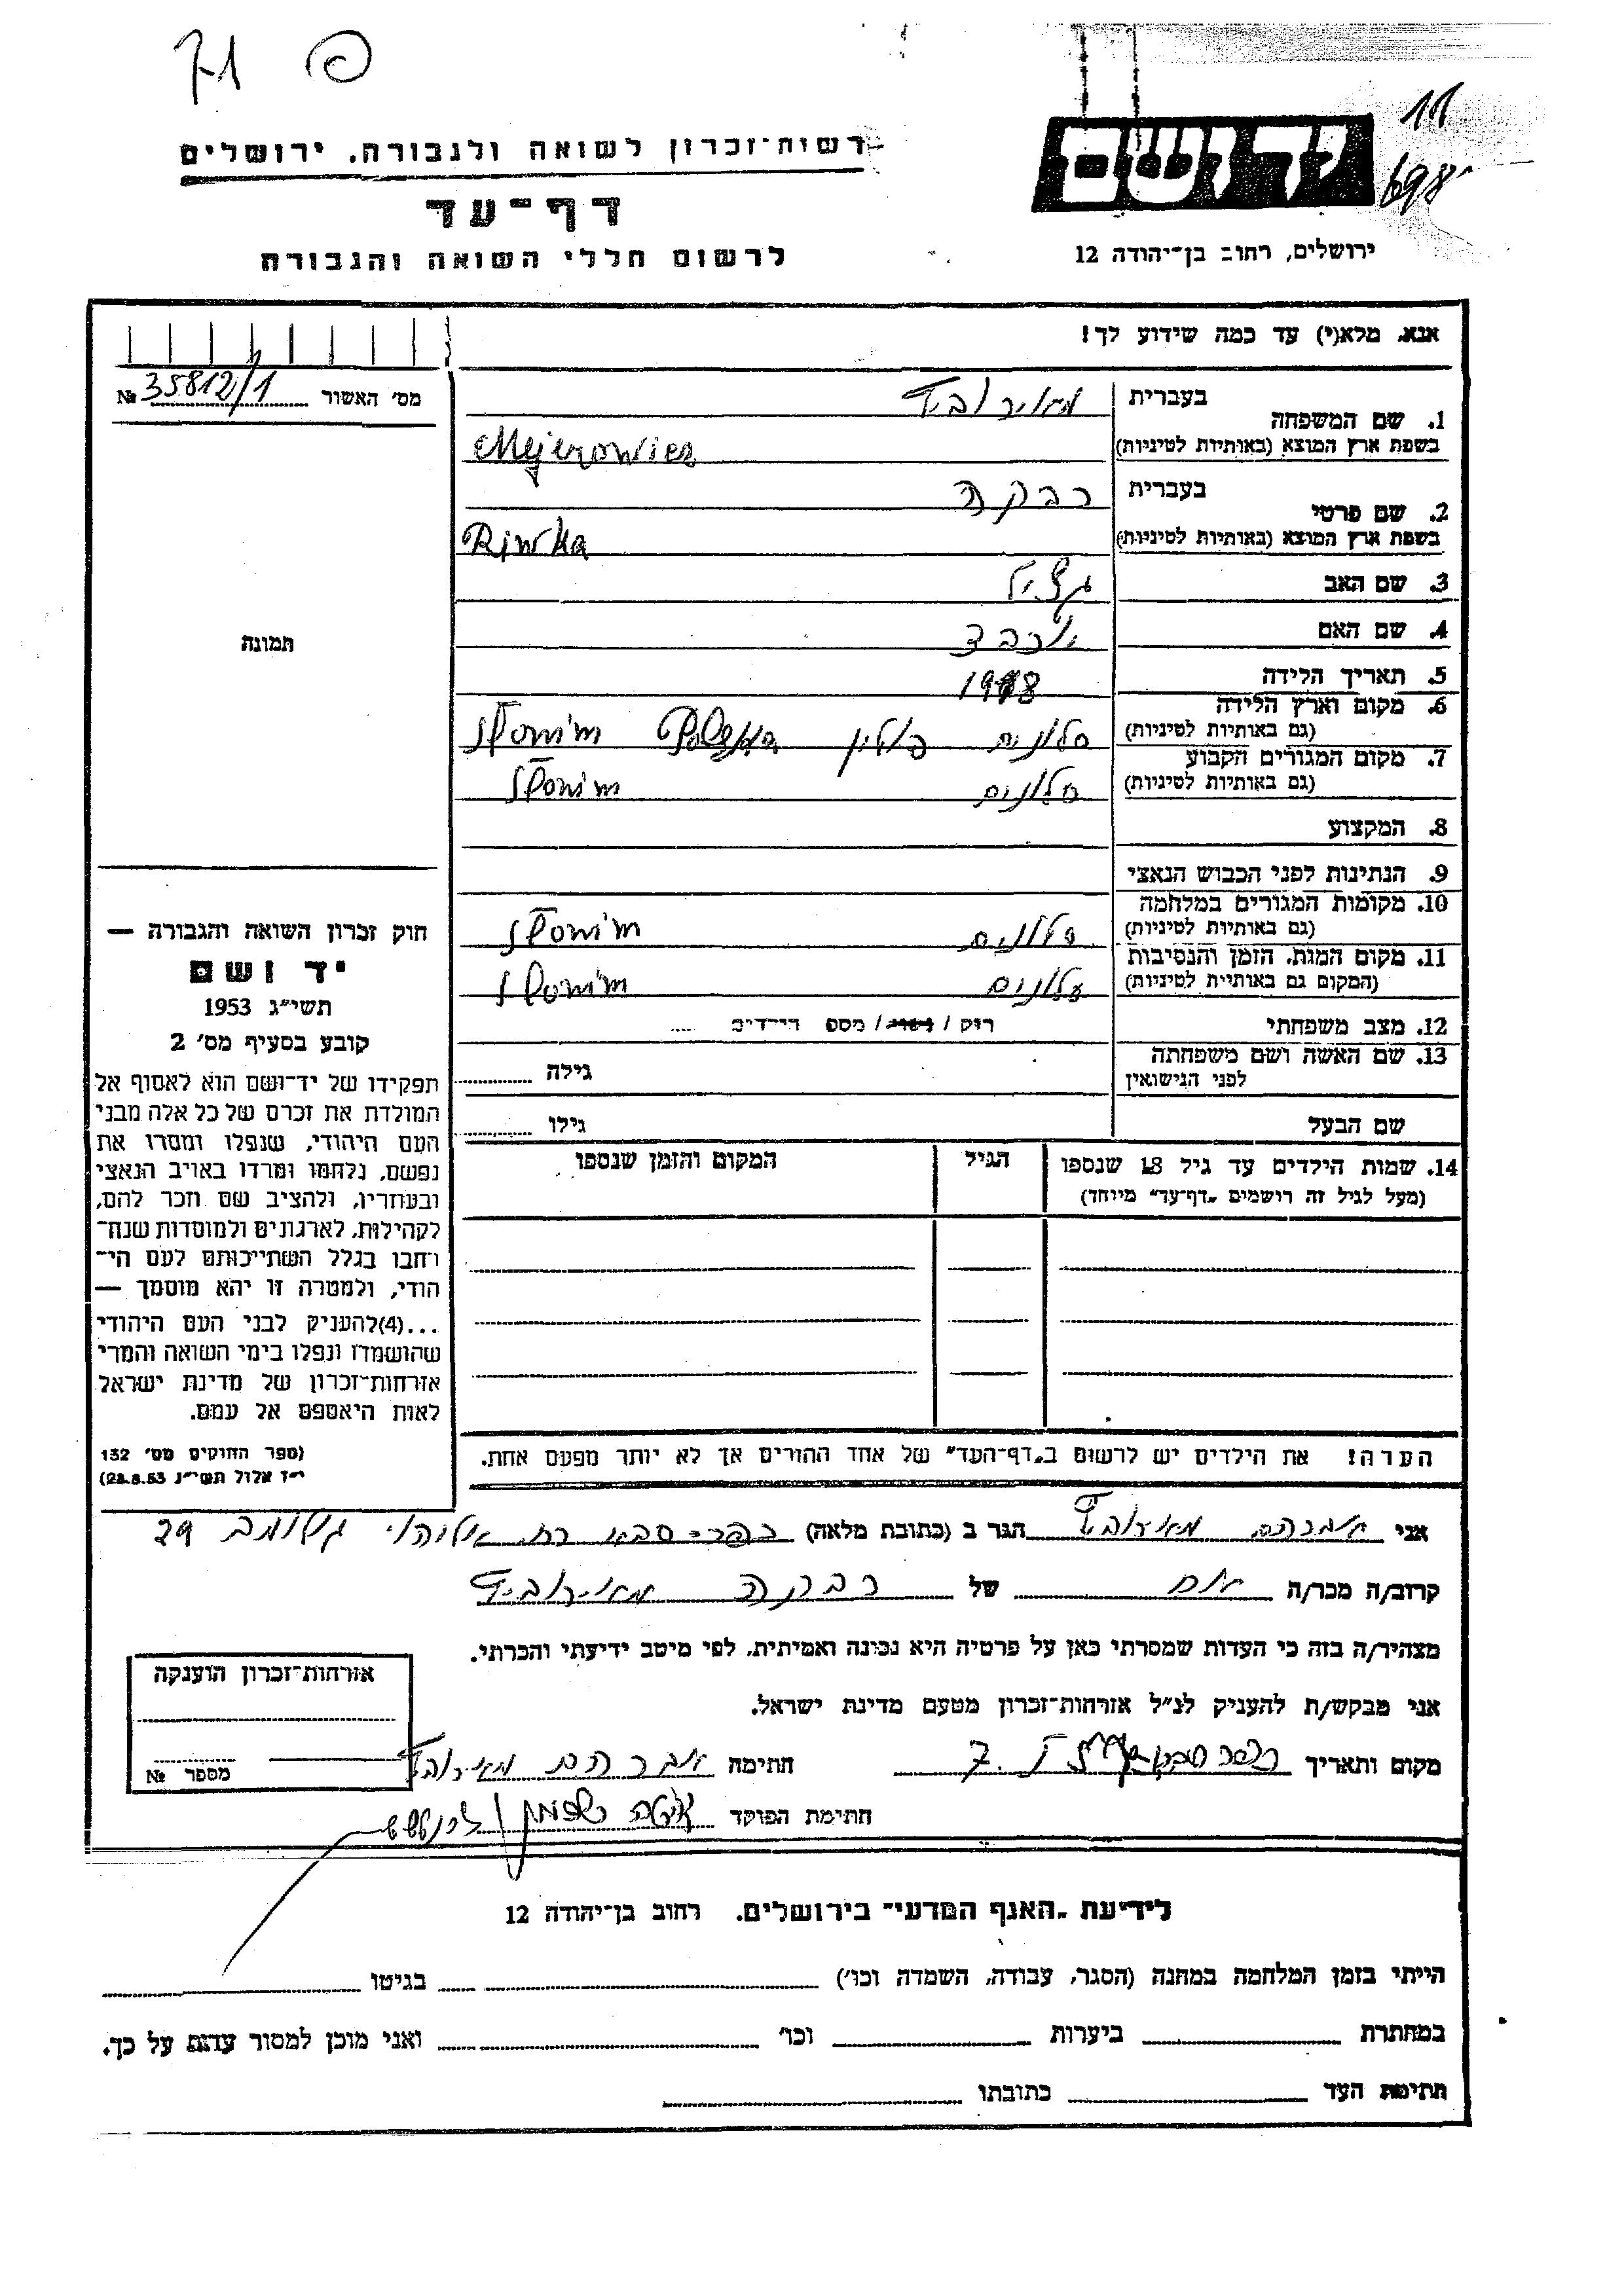 71 פ
רשות־זכרון לשואה ולגבורה. ירושלים
יד ושם
11
698
דף־עד
לרשום חללי השואה והגבורה
ירושלים, רחוב בן־יהודה 12
אנא, מלא(י) עד כמה שידוע לך!
מס׳ האשור № 35812/1
1. שם המשפחה בעברית מאירוביץ
בשפת ארץ המוצא (באותיות לטיניות) Mejerowicz
2. שם פרטי בעברית רבקה
בשפת ארץ המוצא (באותיות לטיניות) Riwka
3. שם האב
4. שם האם יוכבד
5. תאריך הלידה 1918
6. מקום וארץ הלידה (גם באותיות לטיניות) סלונים פולין Polska Słonim
7. מקום המגורים הקבוע (גם באותיות לטיניות) סלונים Słonim
8. המקצוע
9. הנתינות לפני הכבוש הנאצי
10. מקומות המגורים במלחמה (גם באותיות לטיניות) סלונים Słonim
11. מקום המות, הזמן והנסיבות (המקום גם באותיות לטיניות) סלונים Słonim
12. מצב משפחתי רוק / נשוי / מספר הילדים ....
13. שם האשה ושם משפחתה לפני הנישואין גילה
שם הבעל גילו
14. שמות הילדים עד גיל 18 שנספו הגיל המקום והזמן שנספו
(מעל לגיל זה רושמים „דף־עד״ מיוחד)
תמונה
חוק זכרון השואה והגבורה —
יד ושם
תשי״ג 1953
קובע בסעיף מס׳ 2
תפקידו של יד־ושם הוא לאסוף אל
המולדת את זכרם של כל אלה מבני
העם היהודי, שנפלו ומסרו את
נפשם, נלחמו ומרדו באויב הנאצי
ובעוזריו, ולהציב שם וזכר להם,
לקהילות, לארגונים ולמוסדות שנח־
רבו בגלל השתייכותם לעם הי־
הודי, ולמטרה זו יהא מוסמך —
...(4)להעניק לבני העם היהודי
שהושמדו ונפלו בימי השואה והמרי
אזרחות־זכרון של מדינת ישראל
לאות היאספם אל עמם.
(ספר החוקים מס׳ 132
י״ז אלול תשי״ג 28.8.53)
הערה! את הילדים יש לרשום ב„דף־העד״ של אחד ההורים אך לא יותר מפעם אחת.
אני אברהם מאירוביץ הגר ב (כתובת מלאה) כפר־סבא רח 29
קרוב/ה מכר/ה אח של רבקה מאירוביץ
מצהיר/ה בזה כי העדות שמסרתי כאן על פרטיה היא נכונה ואמיתית, לפי מיטב ידיעתי והכרתי.
אני מבקש/ת להעניק לנ״ל אזרחות־זכרון מטעם מדינת ישראל.
מקום ותאריך כפר סבא חתימה אברהם מאירוביץ
חתימת הפוקד
אזרחות־זכרון הוענקה
מספר №
לידיעת „האגף המדעי״ בירושלים. רחוב בן־יהודה 12
הייתי בזמן המלחמה במחנה (הסגר, עבודה, השמדה וכו׳) בגיטו
במחתרת ביערות וכו׳ ואני מוכן למסור עדות על כך.
חתימת העד כתובתו